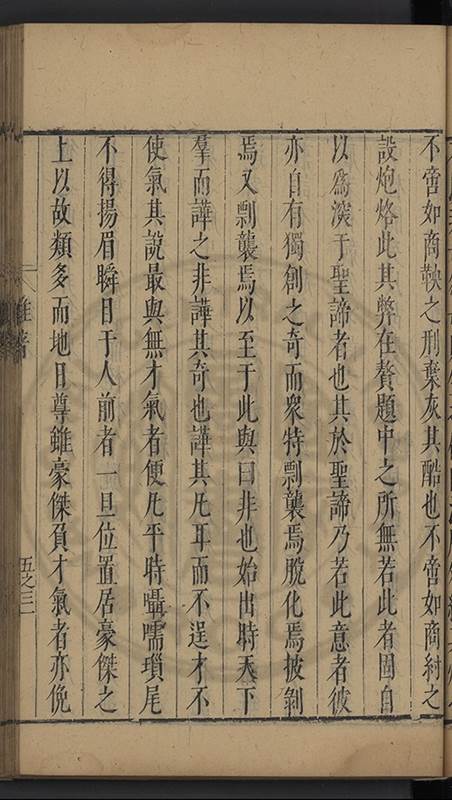 不啻如商鞅之刑棄灰其酷也不啻如商紂之
設炮烙此其弊在贅題中之所無若此者固自
以為深于聖諦者也其於聖諦乃若此意者彼
亦自有獨創之奇而衆特剽襲焉脫化焉披剝
焉又剽襲焉以至于此與曰非也始出時天下
羣而譁之非譁其奇也譁其凡耳而不逞才不
使氣其說最與無才氣者便凡平時囁嚅瑣尾
不得揚眉瞬目于人前者一旦位置居豪傑之
上以故類多而地日尊雖豪傑負才氣者亦俛
雜著
五之三